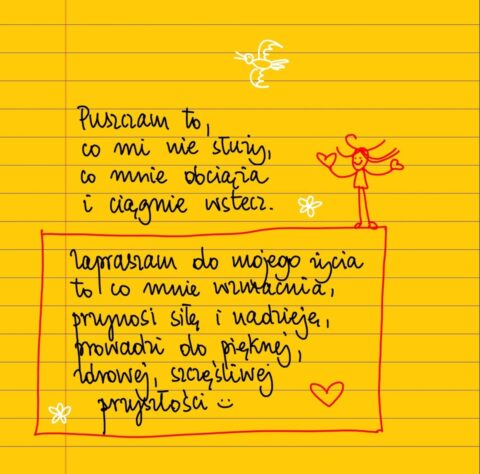 Puszczam to,
co mi nie służy,
co mnie obciąża
i ciągnie wstecz.
Zapraszam do mojego życia
to co mnie wzmacnia,
przynosi siłę i nadzieję,
prowadzi do pięknej,
zdrowej, szczęśliwej
przyszłości :)